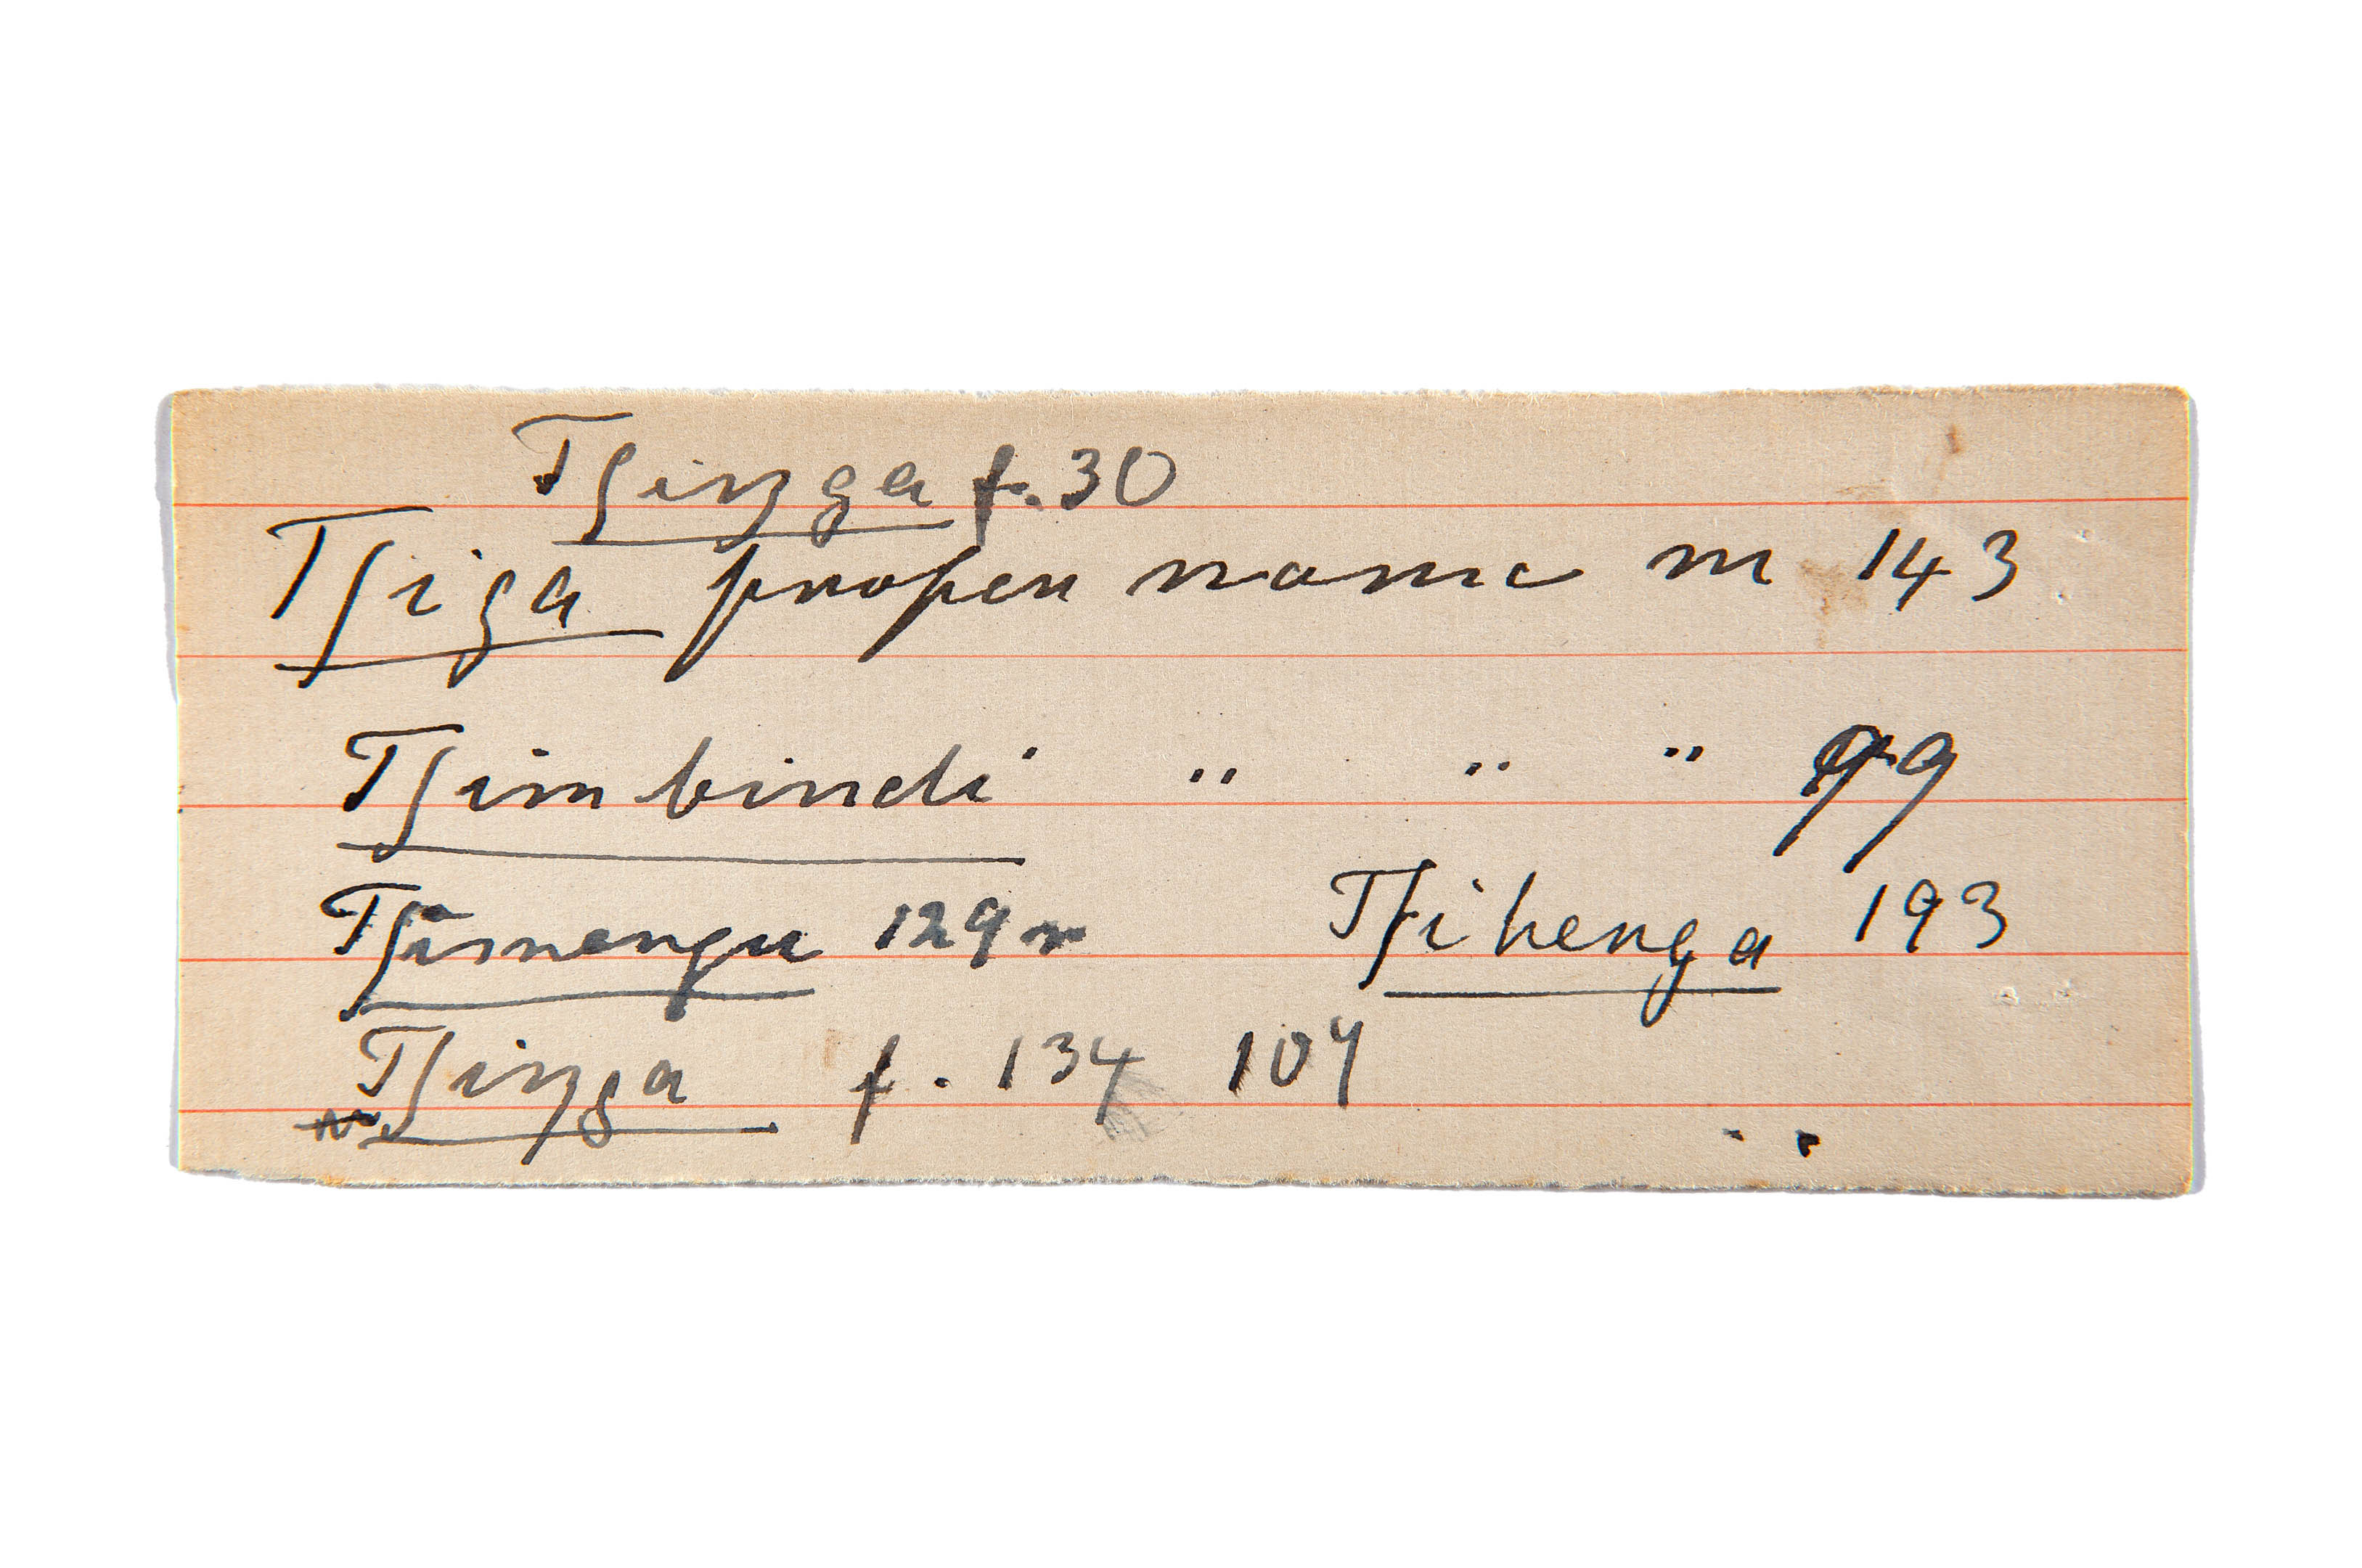 Tʃiŋga f. 30
Tʃiga proper name m 143
Tʃimbindi " " " 99
Tʃimengu 129 m Tʃihenga 193
Tʃiŋga f. 134